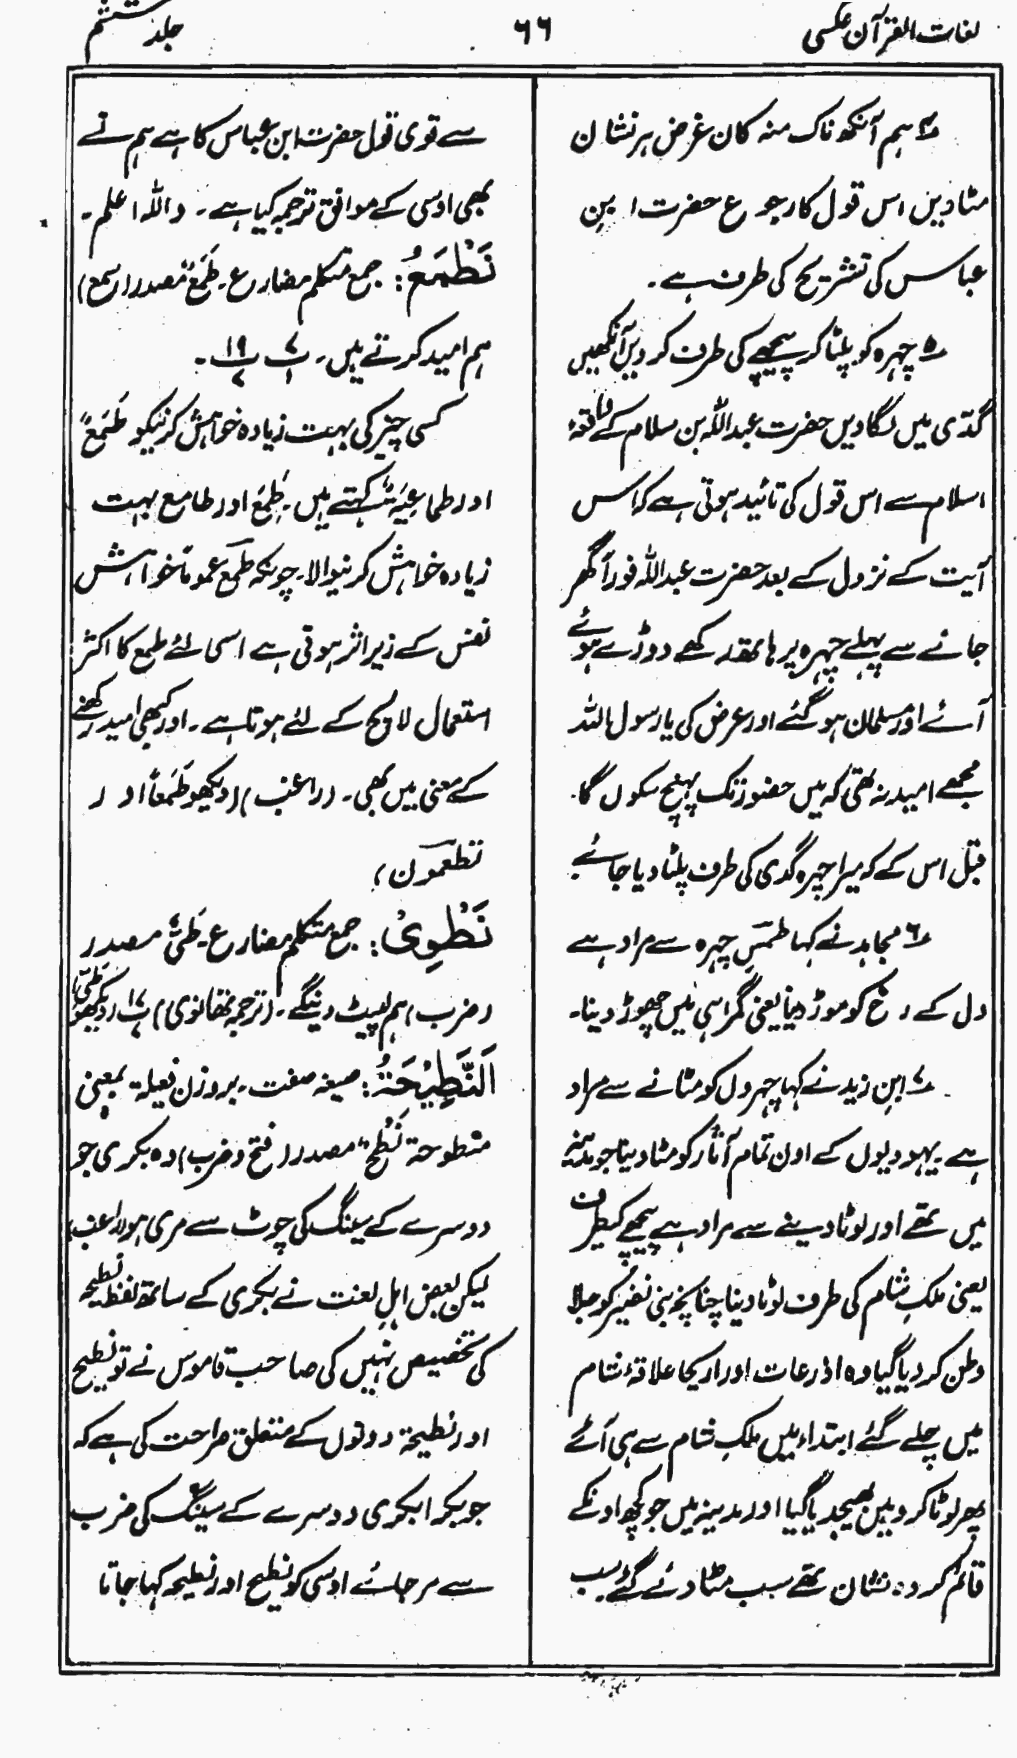 لغات القرآن عکسی
۶۶
جلد ششم
۴ ہم آنکھ ناک منہ کان غرض ہر نشان
مٹا دیں اس قول کا رجوع حضرت ابن
عباس کی تشریح کی طرف ہے۔
۵ چہرہ کو پلٹا کر پیچھے کی طرف کر دیں آنکھیں
گدّی میں لگا دیں حضرت عبداللہ بن سلام کے واقعۂ
اسلام سے اس قول کی تائید ہوتی ہے کہ اس
آیت کے نزول کے بعد حضرت عبداللہ فوراً گھر
جانے سے پہلے چہرہ پر ہاتھ رکھے دوڑے ہوئے
آئے اور مسلمان ہو گئے اور عرض کی یا رسول اللہ
مجھے امید نہ تھی کہ میں حضور تک پہنچ سکوں گا۔
قبل اس کے کہ میرا چہرہ گدی کی طرف پلٹا دیا جائے۔
۶ مجاہد نے کہا طمسِ چہرہ سے مراد ہے
دل کے رخ کو موڑ دینا یعنی گمراہی میں چھوڑ دینا۔
۷ ابن زید نے کہا چہروں کو مٹانے سے مراد
ہے یہودیوں کے اون تمام آثار کو مٹا دینا جو مدینہ
میں تھے اور لوٹا دینے سے مراد ہے پیچھے کیطرف
یعنی ملکِ شام کی طرف لوٹا دینا چنانچہ بنی نضیر کو جلا
وطن کر دیا گیا وہ اذرعات اور اریحا علاقۂ شام
میں چلے گئے ابتداء میں ملکِ شام سے ہی آئے
پھر لوٹا کر وہیں بھیجدیا گیا اور مدینہ میں جو کچھ اونکے
قائم کردہ نشان تھے سب مٹا دئے گئے سب
سے قوی قول حضرت ابن عباس کا ہے ہم نے
بھی اوسی کے موافق ترجمہ کیا ہے۔ واللہ اعلم۔
نَطْمَعُ: جمع متکلم مضارع۔ طَمَعٌ مصدر (سمع)
ہم امید کرتے ہیں۔ پ ۷/۱ پ ۱۹/۷۔
کسی چیز کی بہت زیادہ خواہش کرنیکو طَمَعٌ
اور طماعیَۃٌ کہتے ہیں۔ طَمِعٌ اور طامع بہت
زیادہ خواہش کرنیوالا۔ چونکہ طمع عموماً خواہش
نفس کے زیر اثر ہوتی ہے اسی لئے طمع کا اکثر
استعمال لالچ کے لئے ہوتا ہے۔ اور کبھی امید رکھنے
کے معنی میں بھی۔ (راغب) (دیکھو طَمَعاً اور
تطمعون)
نَطْوِیْ: جمع متکلم مضارع۔ طَیٌّ مصدر
(ضرب) ہم لپیٹ دینگے۔ (ترجمہ تھانوی) پ ۱۷/۷ (دیکھو طَیّ)
اَلنَّطِیْحَۃُ: صیغہ صفت۔ بروزن فعیلۃ بمعنی
منطوحۃ نَطْحٌ مصدر (فتح و ضرب) وہ بکری جو
دوسرے کے سینگ کی چوٹ سے مری ہو (راغب)
لیکن بعض اہلِ لغت نے بکری کے ساتھ لفظ نطیحہ
کی تخصیص نہیں کی صاحب قاموس نے تو نطیح
اور نطیحۃ دونوں کے متعلق صراحت کی ہے کہ
جو بکرا بکری دوسرے کے سینگ کی ضرب
سے مر جائے اوسی کو نطیح اور نطیحہ کہا جاتا